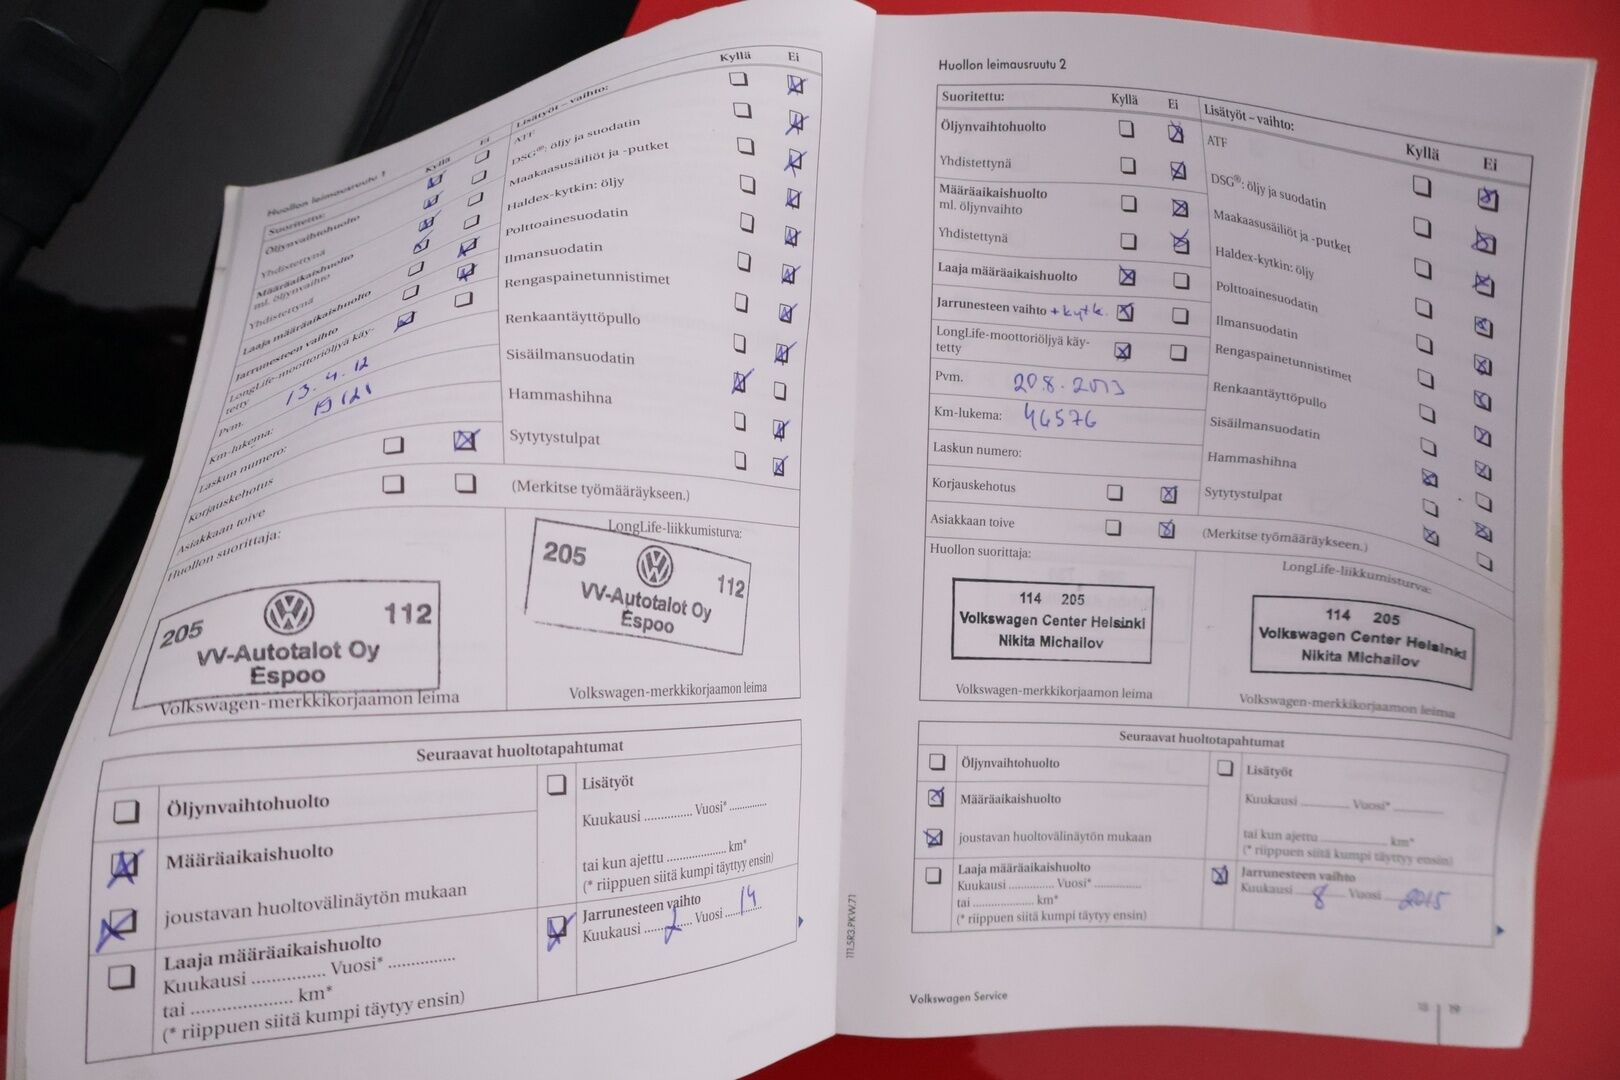 Huollon leimausruutu 1
Suoritettu:
Kyllä
Ei
Öljynvaihtohuolto
Yhdistettynä
Määräaikaishuolto
ml. öljynvaihto
Yhdistettynä
Laaja määräaikaishuolto
Jarrunesteen vaihto
LongLife-moottoriöljyä käy-
tetty
Pvm.
13.4.12
Km-lukema:
19121
Laskun numero:
Korjauskehotus
Asiakkaan toive
Lisätyöt – vaihto:
Kyllä
Ei
ATF
DSG®: öljy ja suodatin
Maakaasusäiliöt ja -putket
Haldex-kytkin: öljy
Polttoainesuodatin
Ilmansuodatin
Rengaspainetunnistimet
Renkaantäyttöpullo
Sisäilmansuodatin
Hammashihna
Sytytystulpat
(Merkitse työmääräykseen.)
Huollon suorittaja:
205 112
VV-Autotalot Oy
Espoo
Volkswagen-merkkikorjaamon leima
LongLife-liikkumisturva:
205 112
VV-Autotalot Oy
Espoo
Volkswagen-merkkikorjaamon leima
Seuraavat huoltotapahtumat
Öljynvaihtohuolto
Määräaikaishuolto
joustavan huoltovälinäytön mukaan
Laaja määräaikaishuolto
Kuukausi .............. Vuosi* ..............
tai ..................... km*
(* riippuen siitä kumpi täytyy ensin)
Lisätyöt
Kuukausi .............. Vuosi* ..............
tai kun ajettu .................. km*
(* riippuen siitä kumpi täytyy ensin)
Jarrunesteen vaihto
Kuukausi 2 Vuosi 14
Huollon leimausruutu 2
Suoritettu:
Kyllä
Ei
Öljynvaihtohuolto
Yhdistettynä
Määräaikaishuolto
ml. öljynvaihto
Yhdistettynä
Laaja määräaikaishuolto
Jarrunesteen vaihto + kytk.
LongLife-moottoriöljyä käy-
tetty
Pvm. 20.8.2013
Km-lukema: 46576
Laskun numero:
Korjauskehotus
Asiakkaan toive
Lisätyöt – vaihto:
Kyllä
Ei
ATF
DSG®: öljy ja suodatin
Maakaasusäiliöt ja -putket
Haldex-kytkin: öljy
Polttoainesuodatin
Ilmansuodatin
Rengaspainetunnistimet
Renkaantäyttöpullo
Sisäilmansuodatin
Hammashihna
Sytytystulpat
(Merkitse työmääräykseen.)
Huollon suorittaja:
114 205
Volkswagen Center Helsinki
Nikita Michailov
Volkswagen-merkkikorjaamon leima
LongLife-liikkumisturva:
114 205
Volkswagen Center Helsinki
Nikita Michailov
Volkswagen-merkkikorjaamon leima
Seuraavat huoltotapahtumat
Öljynvaihtohuolto
Määräaikaishuolto
joustavan huoltovälinäytön mukaan
Laaja määräaikaishuolto
Kuukausi .............. Vuosi* ..............
tai ................... km*
(* riippuen siitä kumpi täytyy ensin)
Lisätyöt
Kuukausi .............. Vuosi* ..............
tai kun ajettu .................. km*
(* riippuen siitä kumpi täytyy ensin)
Jarrunesteen vaihto
Kuukausi 8 Vuosi 2015
111.5R3.PKW.71
Volkswagen Service
18 | 19